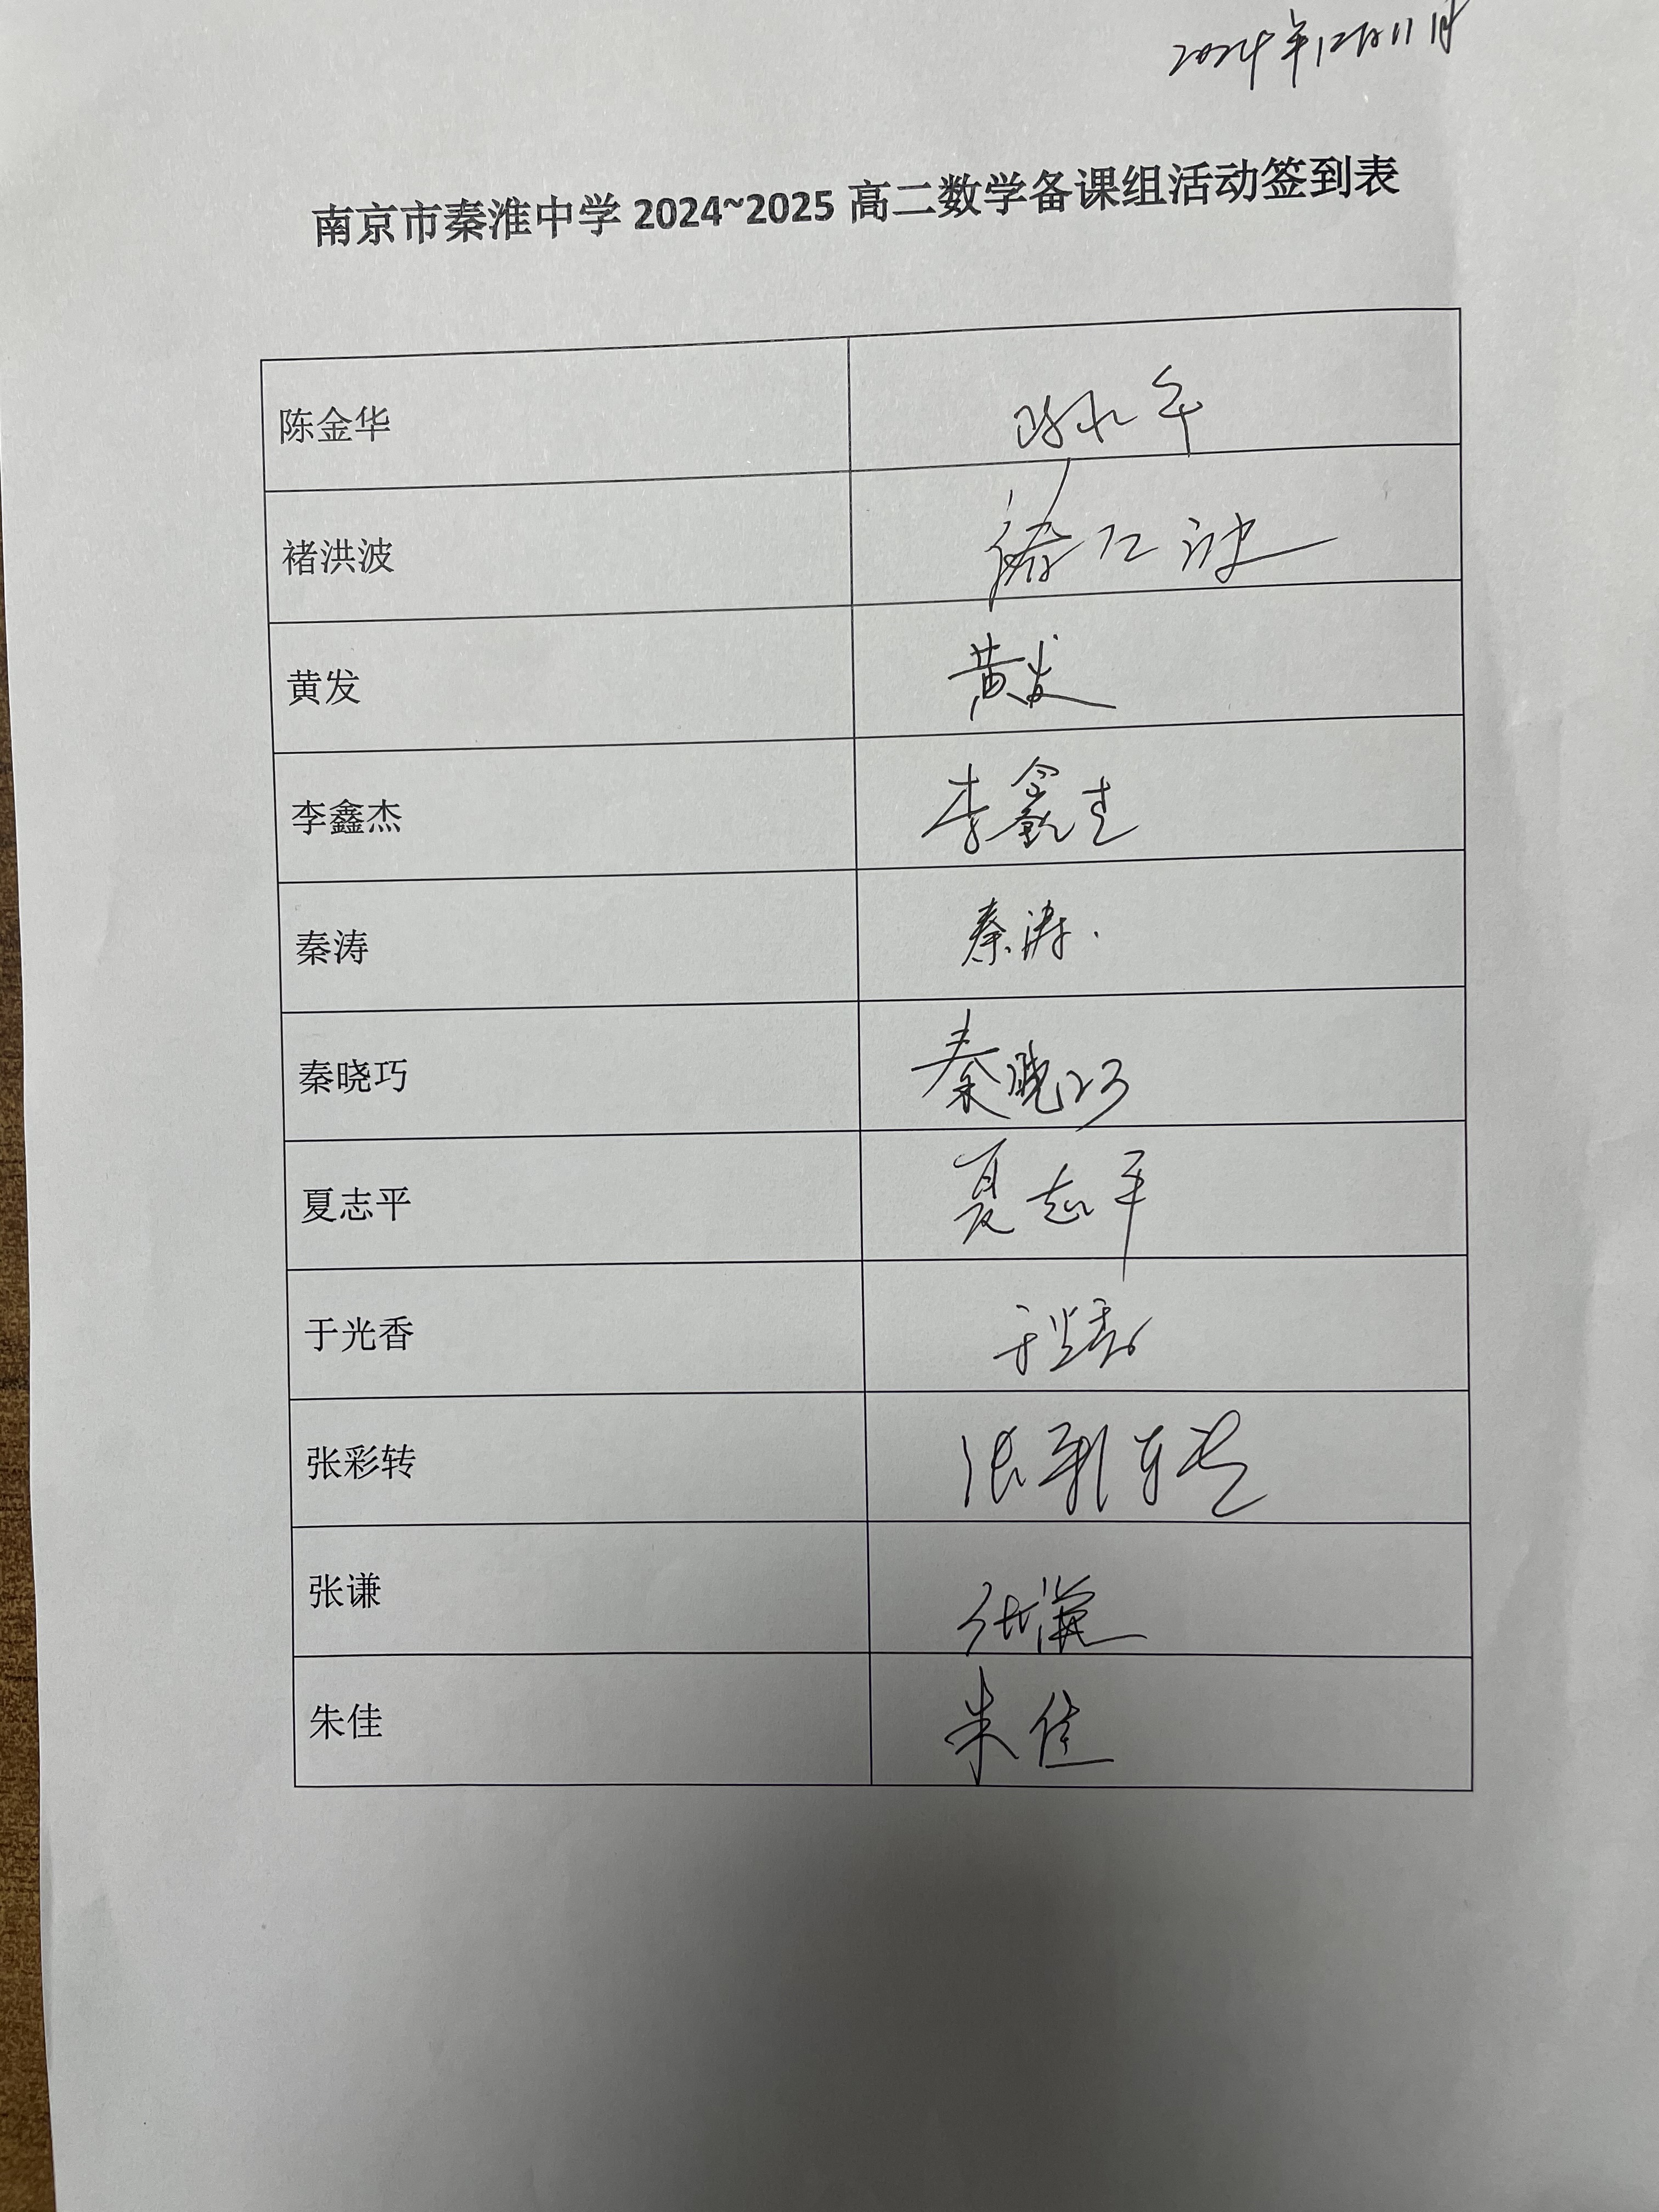 2024年12月11日
南京市秦淮中学 2024~2025 高二数学备课组活动签到表
陈金华
褚洪波 褚洪波
黄发 黄发
李鑫杰 李鑫杰
秦涛 秦涛.
秦晓巧 秦晓巧
夏志平 夏志平
于光香 于光香
张彩转 张彩转
张谦 张谦
朱佳 朱佳